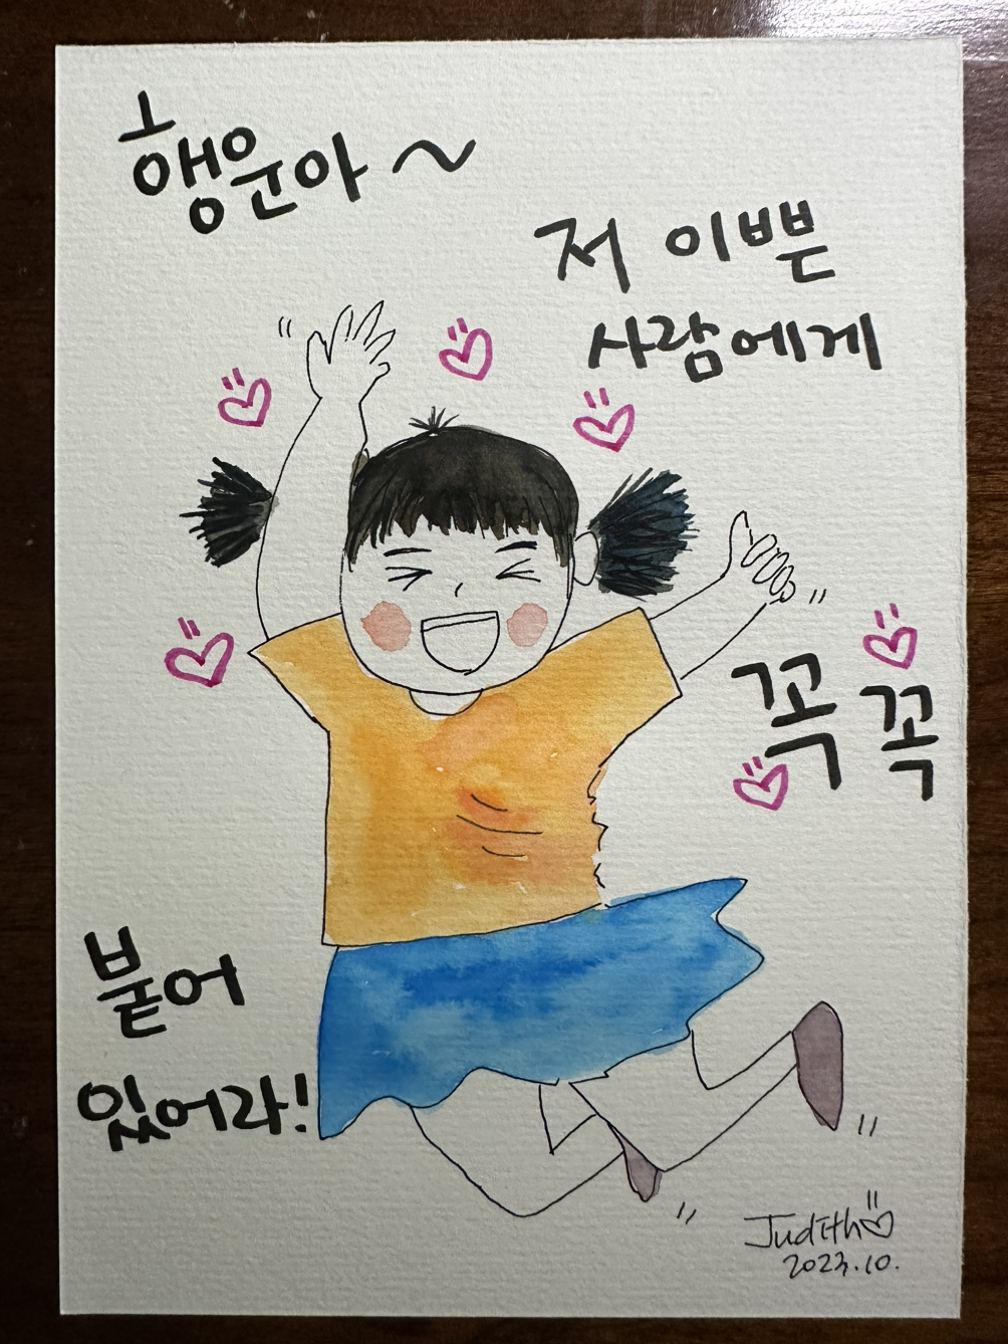 행운아~
저 이쁜
사람에게
꼭 꼭
붙어
있어라!
Judith
2023.10.